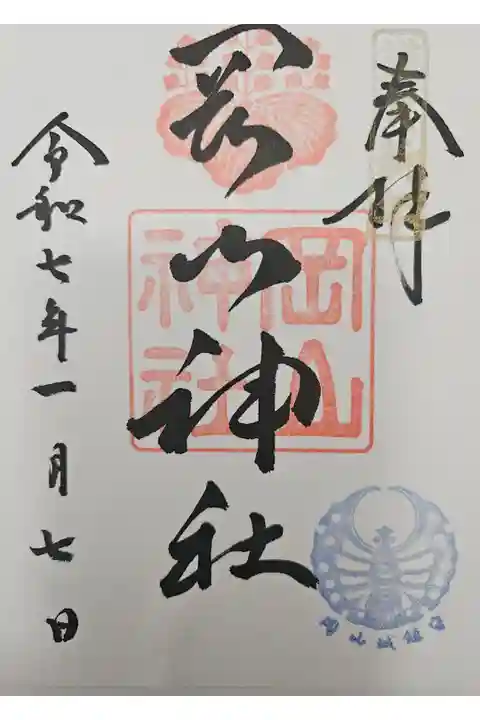 奉拝
岡山神社
岡山神社
令和七年一月七日
岡山城鎮守